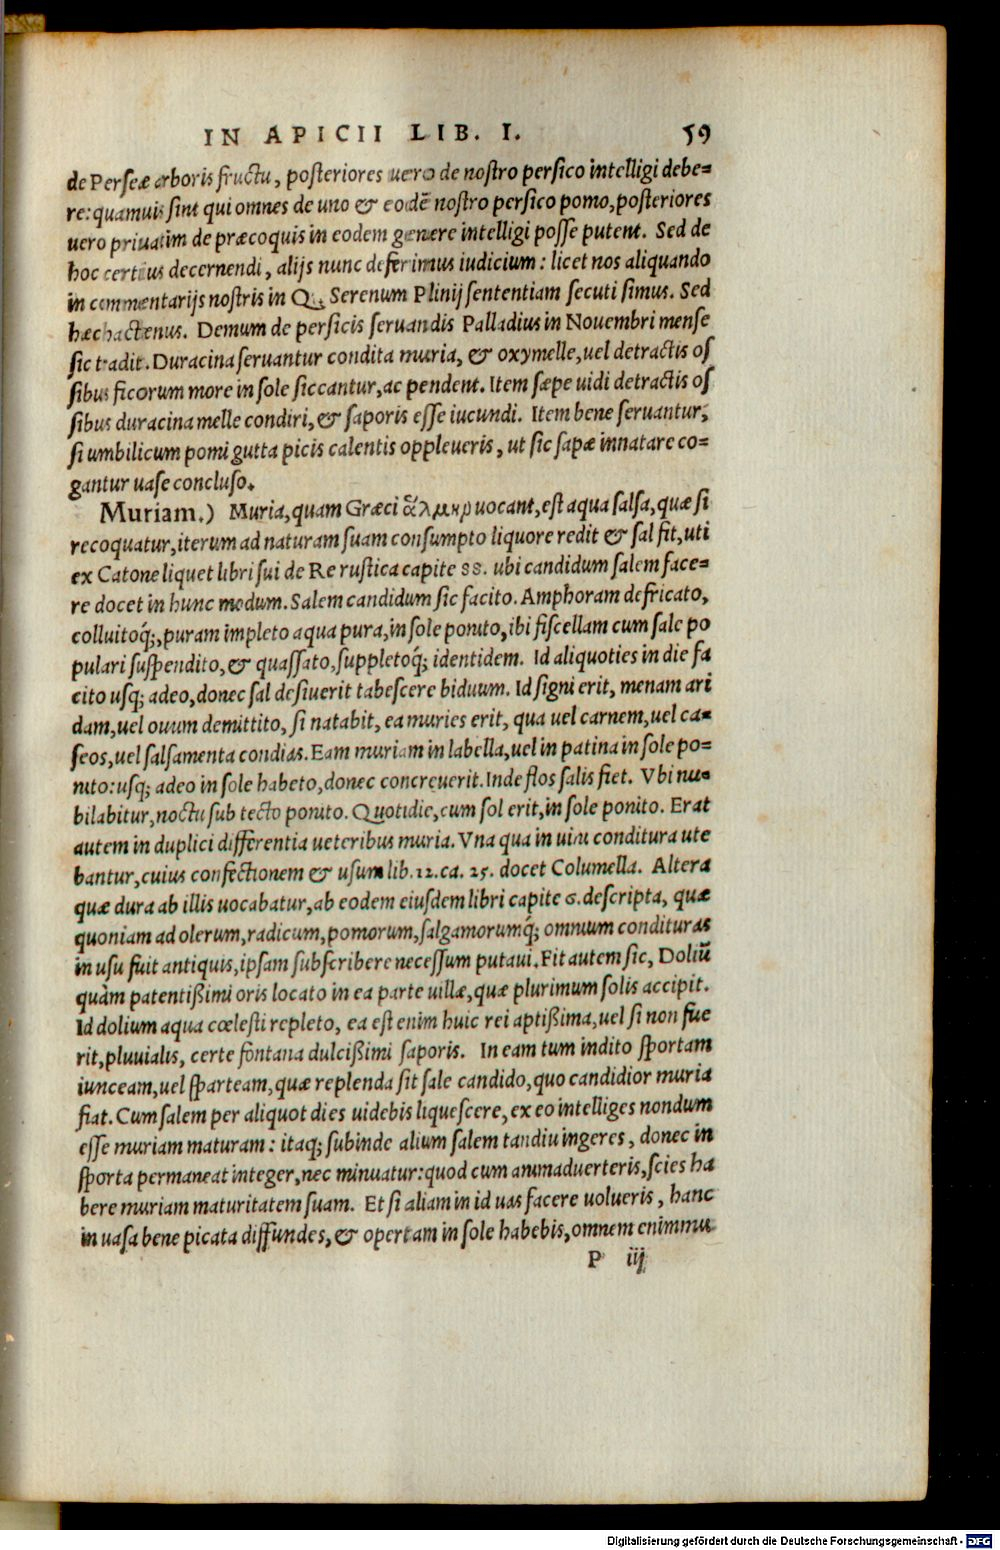 IN APICII LIB. I. 59
de Perseæ arboris fructu, posteriores uero de nostro persico intelligi debe=
re: quamuis sint qui omnes de uno & eodẽ nostro persico pomo, posteriores
uero priuatim de præcoquis in eodem genere intelligi posse putent. Sed de
hoc certius decernendi, alijs nunc deferimus iudicium: licet nos aliquando
in commentarijs nostris in Q. Serenum Plinij sententiam secuti simus. Sed
hæc hactenus. Demum de persicis seruandis Palladius in Nouembri mense
sic tradit. Duracina seruantur condita muria, & oxymelle, uel detractis os
sibus ficorum more in sole siccantur, ac pendent. Item sæpe uidi detractis os
sibus duracina melle condiri, & saporis esse iucundi. Item bene seruantur,
si umbilicum pomi gutta picis calentis oppleueris, ut sic sapæ innatare co=
gantur uase concluso.
Muriam.) Muria, quam Græci ἅλμην uocant, est aqua salsa, quæ si
recoquatur, iterum ad naturam suam consumpto liquore redit & sal fit, uti
ex Catone liquet libri sui de Re rustica capite 88. ubi candidum salem face=
re docet in hunc modum. Salem candidum sic facito. Amphoram defricato,
colluitoq́;, puram impleto aqua pura, in sole ponito, ibi fiscellam cum sale po
pulari suspendito, & quassato, suppletoq́; identidem. Id aliquoties in die fa
cito usq; adeo, donec sal desiuerit tabescere biduum. Id signi erit, menam ari
dam, uel ouum demittito, si natabit, ea muries erit, qua uel carnem, uel ca=
seos, uel salsamenta condias. Eam muriam in labella, uel in patina in sole po=
nito: usq; adeo in sole habeto, donec concreuerit. Inde flos salis fiet. Vbi nu=
bilabitur, noctu sub tecto ponito. Quotidie, cum sol erit, in sole ponito. Erat
autem in duplici differentia ueteribus muria. Vna qua in uini conditura ute
bantur, cuius confectionem & usum lib. 12. ca. 25. docet Columella. Altera
quæ dura ab illis uocabatur, ab eodem eiusdem libri capite 6. descripta, quæ
quoniam ad olerum, radicum, pomorum, salgamorumq́; omnium condituras
in usu fuit antiquis, ipsam subscribere necessum putaui. Fit autem sic, Doliũ
quàm patentißimi oris locato in ea parte uillæ, quæ plurimum solis accipit.
Id dolium aqua cœlesti repleto, ea est enim huic rei aptißima, uel si non fue
rit, pluuialis, certe fontana dulcißimi saporis. In eam tum indito sportam
iunceam, uel sparteam, quæ replenda sit sale candido, quo candidior muria
fiat. Cum salem per aliquot dies uidebis liquescere, ex eo intelliges nondum
esse muriam maturam: itaq; subinde alium salem tandiu ingeres, donec in
sporta permaneat integer, nec minuatur: quod cum animaduerteris, scies ha
bere muriam maturitatem suam. Et si aliam in id uas facere uolueris, hanc
in uasa bene picata diffundes, & opertam in sole habebis, omnem enim mu
P iij
Digitalisierung gefördert durch die Deutsche Forschungsgemeinschaft - DFG